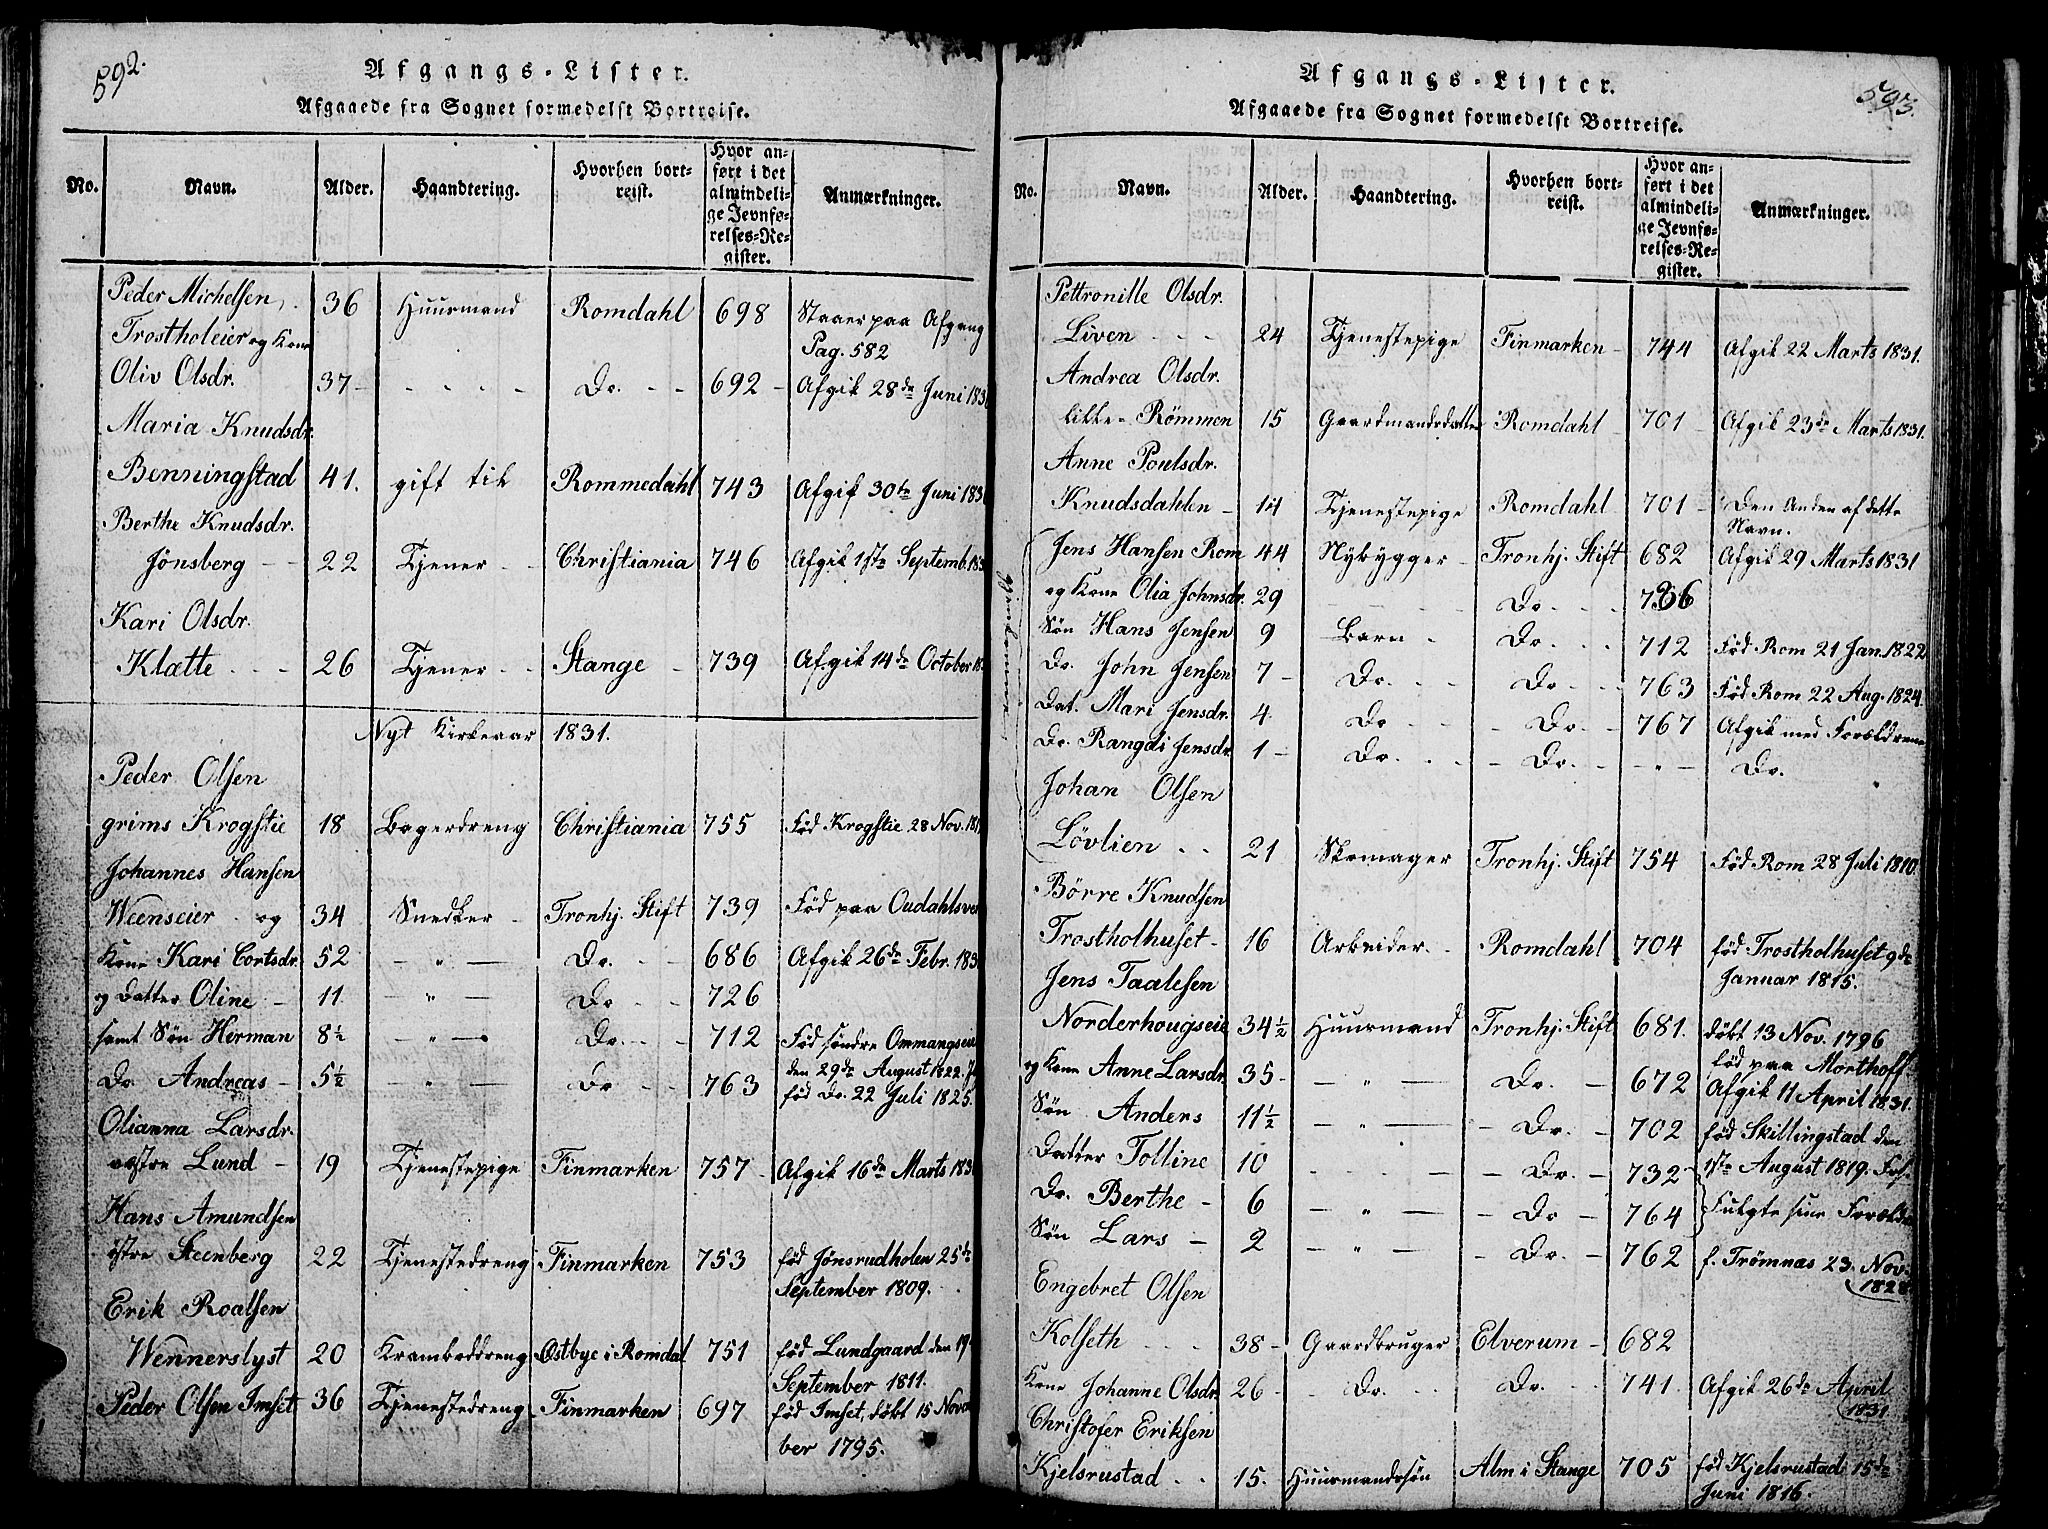 592.
Afgangs-Lister.
Afgaaede fra Sognet formedelst Bortreise.
No. Navn. Alder. Haandtering. Hvorhen bortreist. Hvor anført i det almindelige Jevnførelses-Register. Anmærkninger.
Peder Michelsen, 36 Huusmand Romdahl 698 Staaer paa Afgang
Trostholeier og Kone Pag. 582
Oliv Olsdr. 37 - - - - Do. - - 692 - Afgik 28de Juni
Maria Knudsdr.
Benningstad 41. gift til Rommedahl 743 Afgik 30te Juni
Berthe Knudsdr.
Jønsberg - - 22 Tjener - - Christiania 746 Afgik 1ste Septemb.
Kari Olsdr.
Klætte - - - 26 Tjener - - Stange - 739 Afgik 14de October
Nyt Kirkeaar 1831.
Peder Olsen
grims Krogstie 18 Bagerdreng Christiania 755 Fød Krogstie 28 Nov.
Johannes Hansen
Weenseier og 34 Snedker - Tronhj. Stift 739 Fød paa
Kone Kari Cortsdr. 52 - " - Do. - - 686 Afgik 26de Febr.
og Datter Oline - 11 - " - Do - - 726
samt Søn Herman 8½ - " - Do. - - 712 Fød søndre Ommangseie
den 29de August 1822.
Do. Andreas - 5½ - " - Do - - 763 fød Do. 22 Juli 1825.
Olianna Larsdr.
østre Lund - 19 Tjenestepige Finmarken 757 - Afgik 16de Marts
Hans Amundsen
østre Steenberg 22 Tjenestedreng Finmarken 753 fød Jønsrudholen 25de
September 1809.
Erik Roalsen
Wennerslyst 20 Kramboddreng Østbye i Romdal 751 fød Lundgaard den 19
September 1811.
Peder Olsen Imset 36 Tjenestedreng Finmarken 697 fød Imset, døbt 15 Novem
ber 1795.
593.
Afgangs-Lister.
Afgaaede fra Sognet formedelst Bortreise.
No. Navn. Alder. Haandtering. Hvorhen bortreist. Hvor anført i det almindelige Jevnførelses-Register. Anmærkninger.
Pettronille Olsdr.
Liven - - - 24 Tjenestepige Finmarken - 744 Afgik 22 Marts 1831.
Andrea Olsdr.
lille- Rømmen 15 Gaardmandsdatter Romdahl 701 - Afgik 23de Marts 1831.
Anne Poulsdr.
Knudsdahlen - 14 Tjenestepige Romdahl 701 - Den Anden af dette
Navn.
Jens Hansen Rom 44 Nybygger - Tronhj. Stift 682 Afgik 29 Marts 1831
og Kone Olia Johnsdr. 29 - - - Do - - - 736
Søn Hans Jensen 9 Barn - Do. - - - 712 Fød Rom 21 Jan. 1822
Do. John Jensen 7 - Do. - - Do - - - 763 Fød Rom 22 Aug. 1824.
Dat. Mari Jensdr. 4. Do - - - Do. - - 767 Afgik med Forældrene
Do. Rangdi Jensdr. 1 - Do. - - - Do. - - " - Do.
Johan Olsen
Løvlien - - 21 Skomager Tronhj. Stift 754 Fød Rom 28 Juli 1810.
Børre Knudsen
Trostholhuset - 16 Arbeider - - Romdahl 704 fød Trostholhuset 9de
Januar 1815.
Jens Taalesen
Norderhougseie 34½ Huusmand Tronhj. Stift 681. døbt 13 Nov. 1796
fød paa Morthoff.
og Kone Anne Larsdr. 35 - - " - Do. - 672 Afgik 11 April 1831.
Søn Anders 11½ - " - - Do. - 702 fød Skillingstad den
Datter Tolline 10 - - - - Do. - 732 1ste August 1819.
Do. Berthe - 6 - " - - Do - 764 Fulgte sine Forældre
Søn Lars - 2 - " - - Do. - 762 f. Trømnæs 23 Nov.
1828
Engebret Olsen
Kolseth - - - 38 - Gaardbruger Elverum - 682
Kone Johanne Olsdr. 26 - - Do. - - Do. - - 741. Afgik 26de April
1831
Christofer Eriksen
Kjelsrustad - - 15. Huusmandssøn Alm i Stange 705 fød Kjelsrustad 15de
Juni 1816.